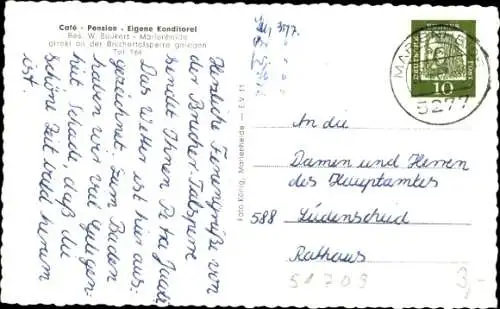 Café - Pension - Eigene Konditorei
Marienheide
direkt an der Brüchertalsperre gelegen
Tel. 566
Herzliche Feriengrüße von
der Brucher-Talsperre
sendet Ihnen
Das Wetter ist hier aus-
gezeichnet. Zum Baden
haben wir viel Gelegen-
heit. Schade, daß die
schöne Zeit bald herum
ist.
Foto König, Marienheide —
DEUTSCHE BUNDESPOST
10
MARIENHEIDE
5277
An die
Damen und Herren
des Hauptamtes
588 Lüdenscheid
Rathaus
51709
3,-